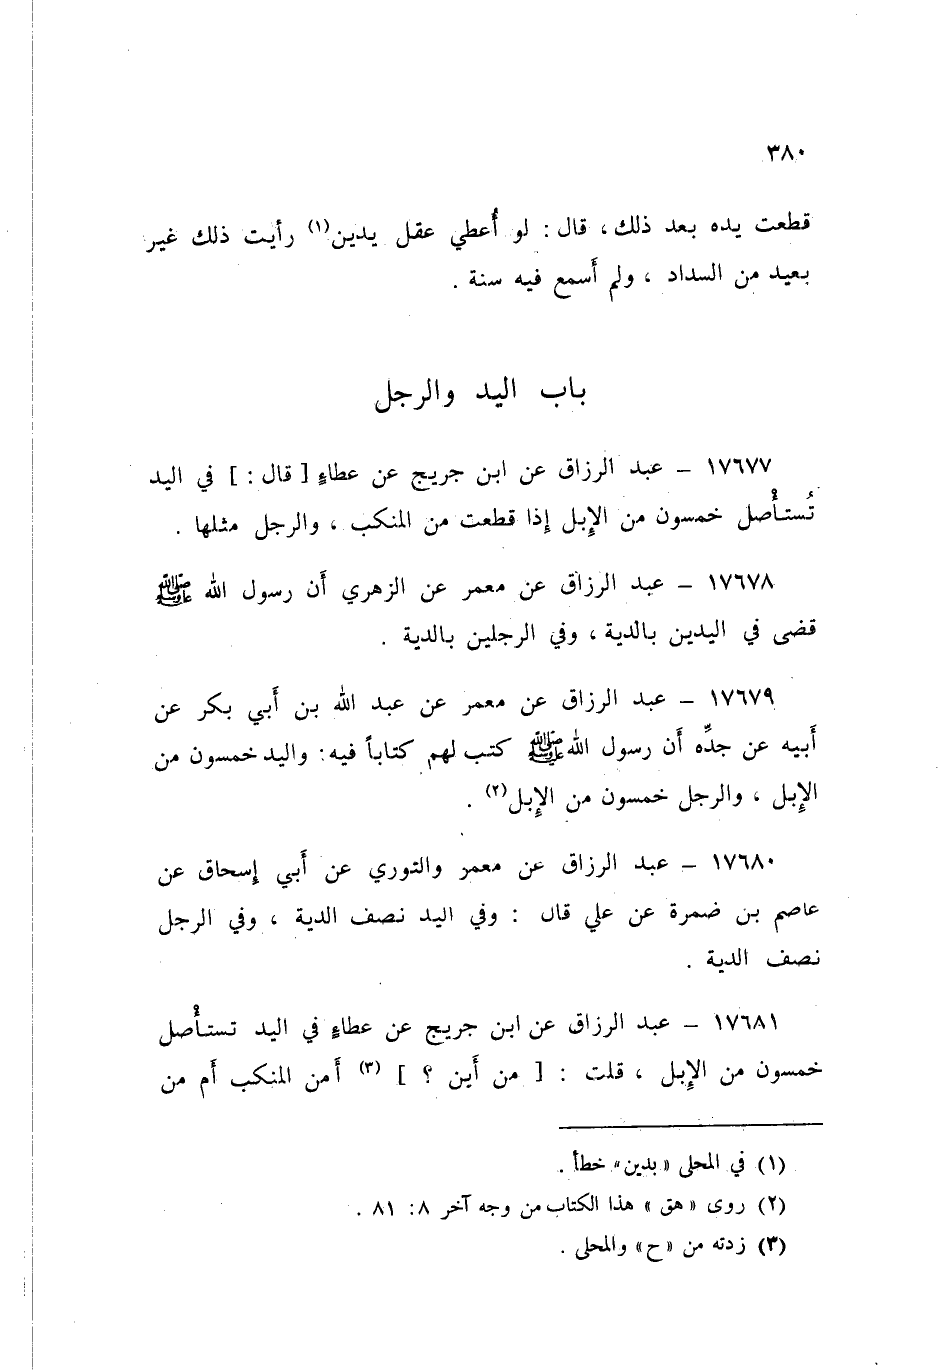 ٣٨٠
قطعت يده بعد ذلك، قال: لو أُعطي عقل يدين(١) رأيت ذلك غير
بعيد من السداد ، ولم أَسمع فيه سنة .
باب اليد والرجل
١٧٦٧٧ – عبد الرزاق عن ابن جريج عن عطاءٍ [ قال : ] في اليد
تُستأْصل خمسون من الإِبل إِذا قطعت من المنكب ، والرجل مثلها .
١٧٦٧٨ – عبد الرزاق عن معمر عن الزهري أَن رسول الله ﷺ
قضى في اليدين بالدية ، وفي الرجلين بالدية .
١٧٦٧٩ – عبد الرزاق عن معمر عن عبد الله بن أَبي بكر عن
أَبيه عن جدِّه أَن رسول الله ﷺ كتب لهم كتاباً فيه: واليد خمسون من
الإِبل ، والرجل خمسون من الإِبل(٢) .
١٧٦٨٠ – عبد الرزاق عن معمر والثوري عن أَبي إِسحاق عن
عاصم بن ضمرة عن علي قال : وفي اليد نصف الدية ، وفي الرجل
نصف الدية .
١٧٦٨١ – عبد الرزاق عن ابن جريج عن عطاءٍ في اليد تستأْصل
خمسون من الإِبل ، قلت : [ من أَين ؟ ] (٣) أَمن المنكب أَم من
(١) في المحلى «بدين» خطأ .
(٢) روى «هق» هذا الكتاب من وجه آخر ٨: ٨١ .
(٣) زدته من «ح» والمحلى .